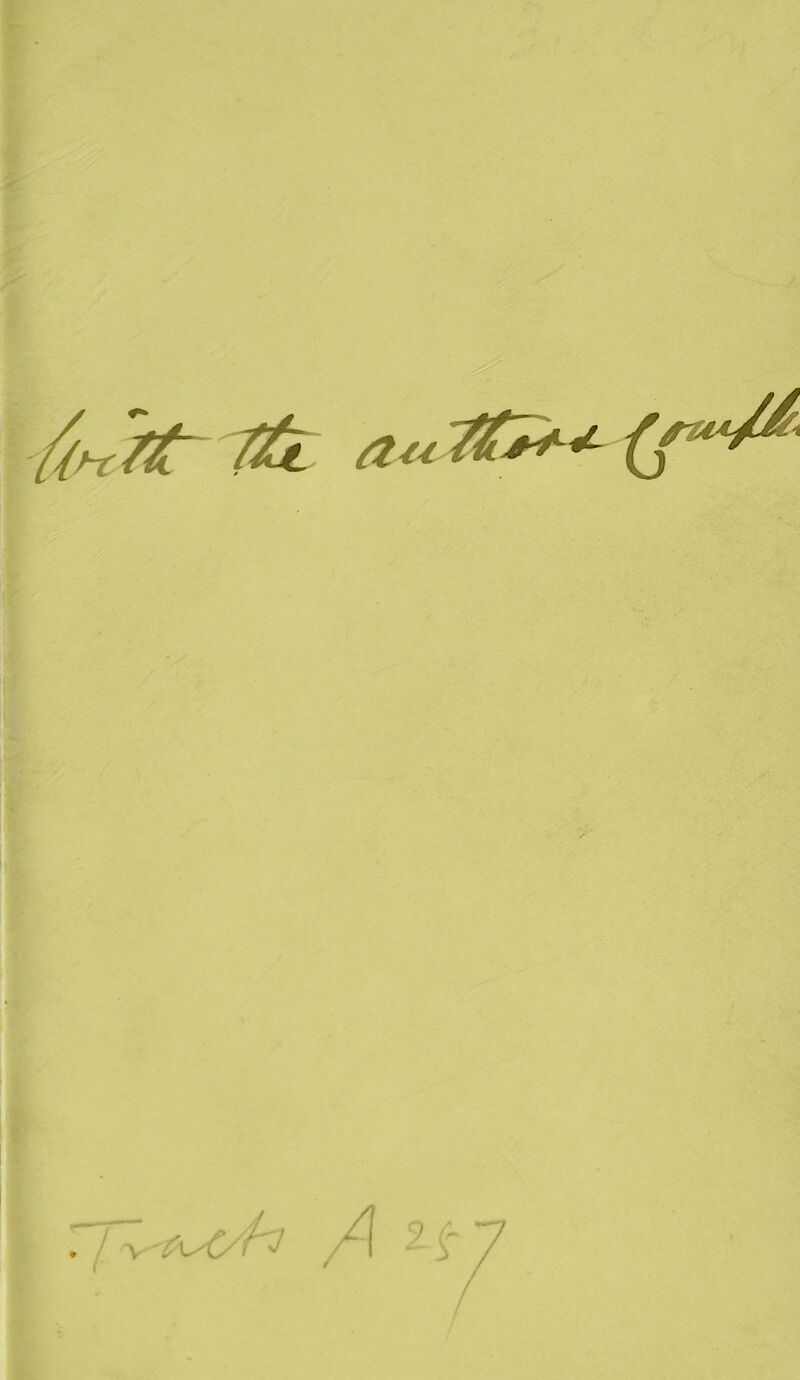 With the authors Compts
Tracts A 257